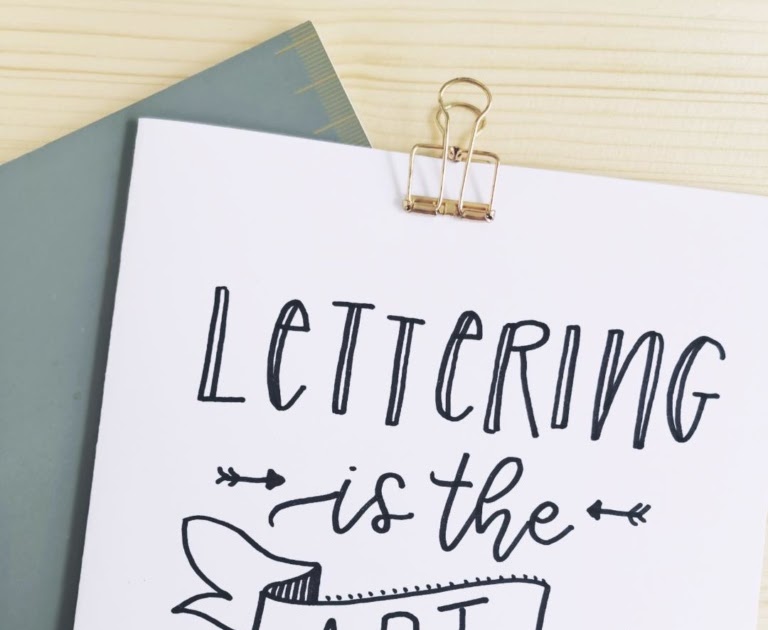 LeTTeRING
is the
ART